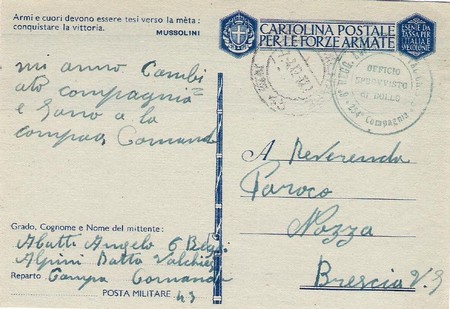 Armi e cuori devono essere tesi verso la mèta:
conquistare la vittoria.
MUSSOLINI
CARTOLINA POSTALE
PER LE FORZE ARMATE
ESENTE DA
TASSA PER
L'ITALIA E
COLONIE
UFFICIO
SPROVVISTO
DI BOLLO
254ª Compagnia
mi anno Cambi
ato compagnia
e sono a la
compag Comand
A Reverendo
Paroco
Nozza
Brescia V. S
Grado, Cognome e Nome del mittente:
Abatti Angelo 6
Alpini Batta Valchiese
Reparto Compa Comando
POSTA MILITARE 43